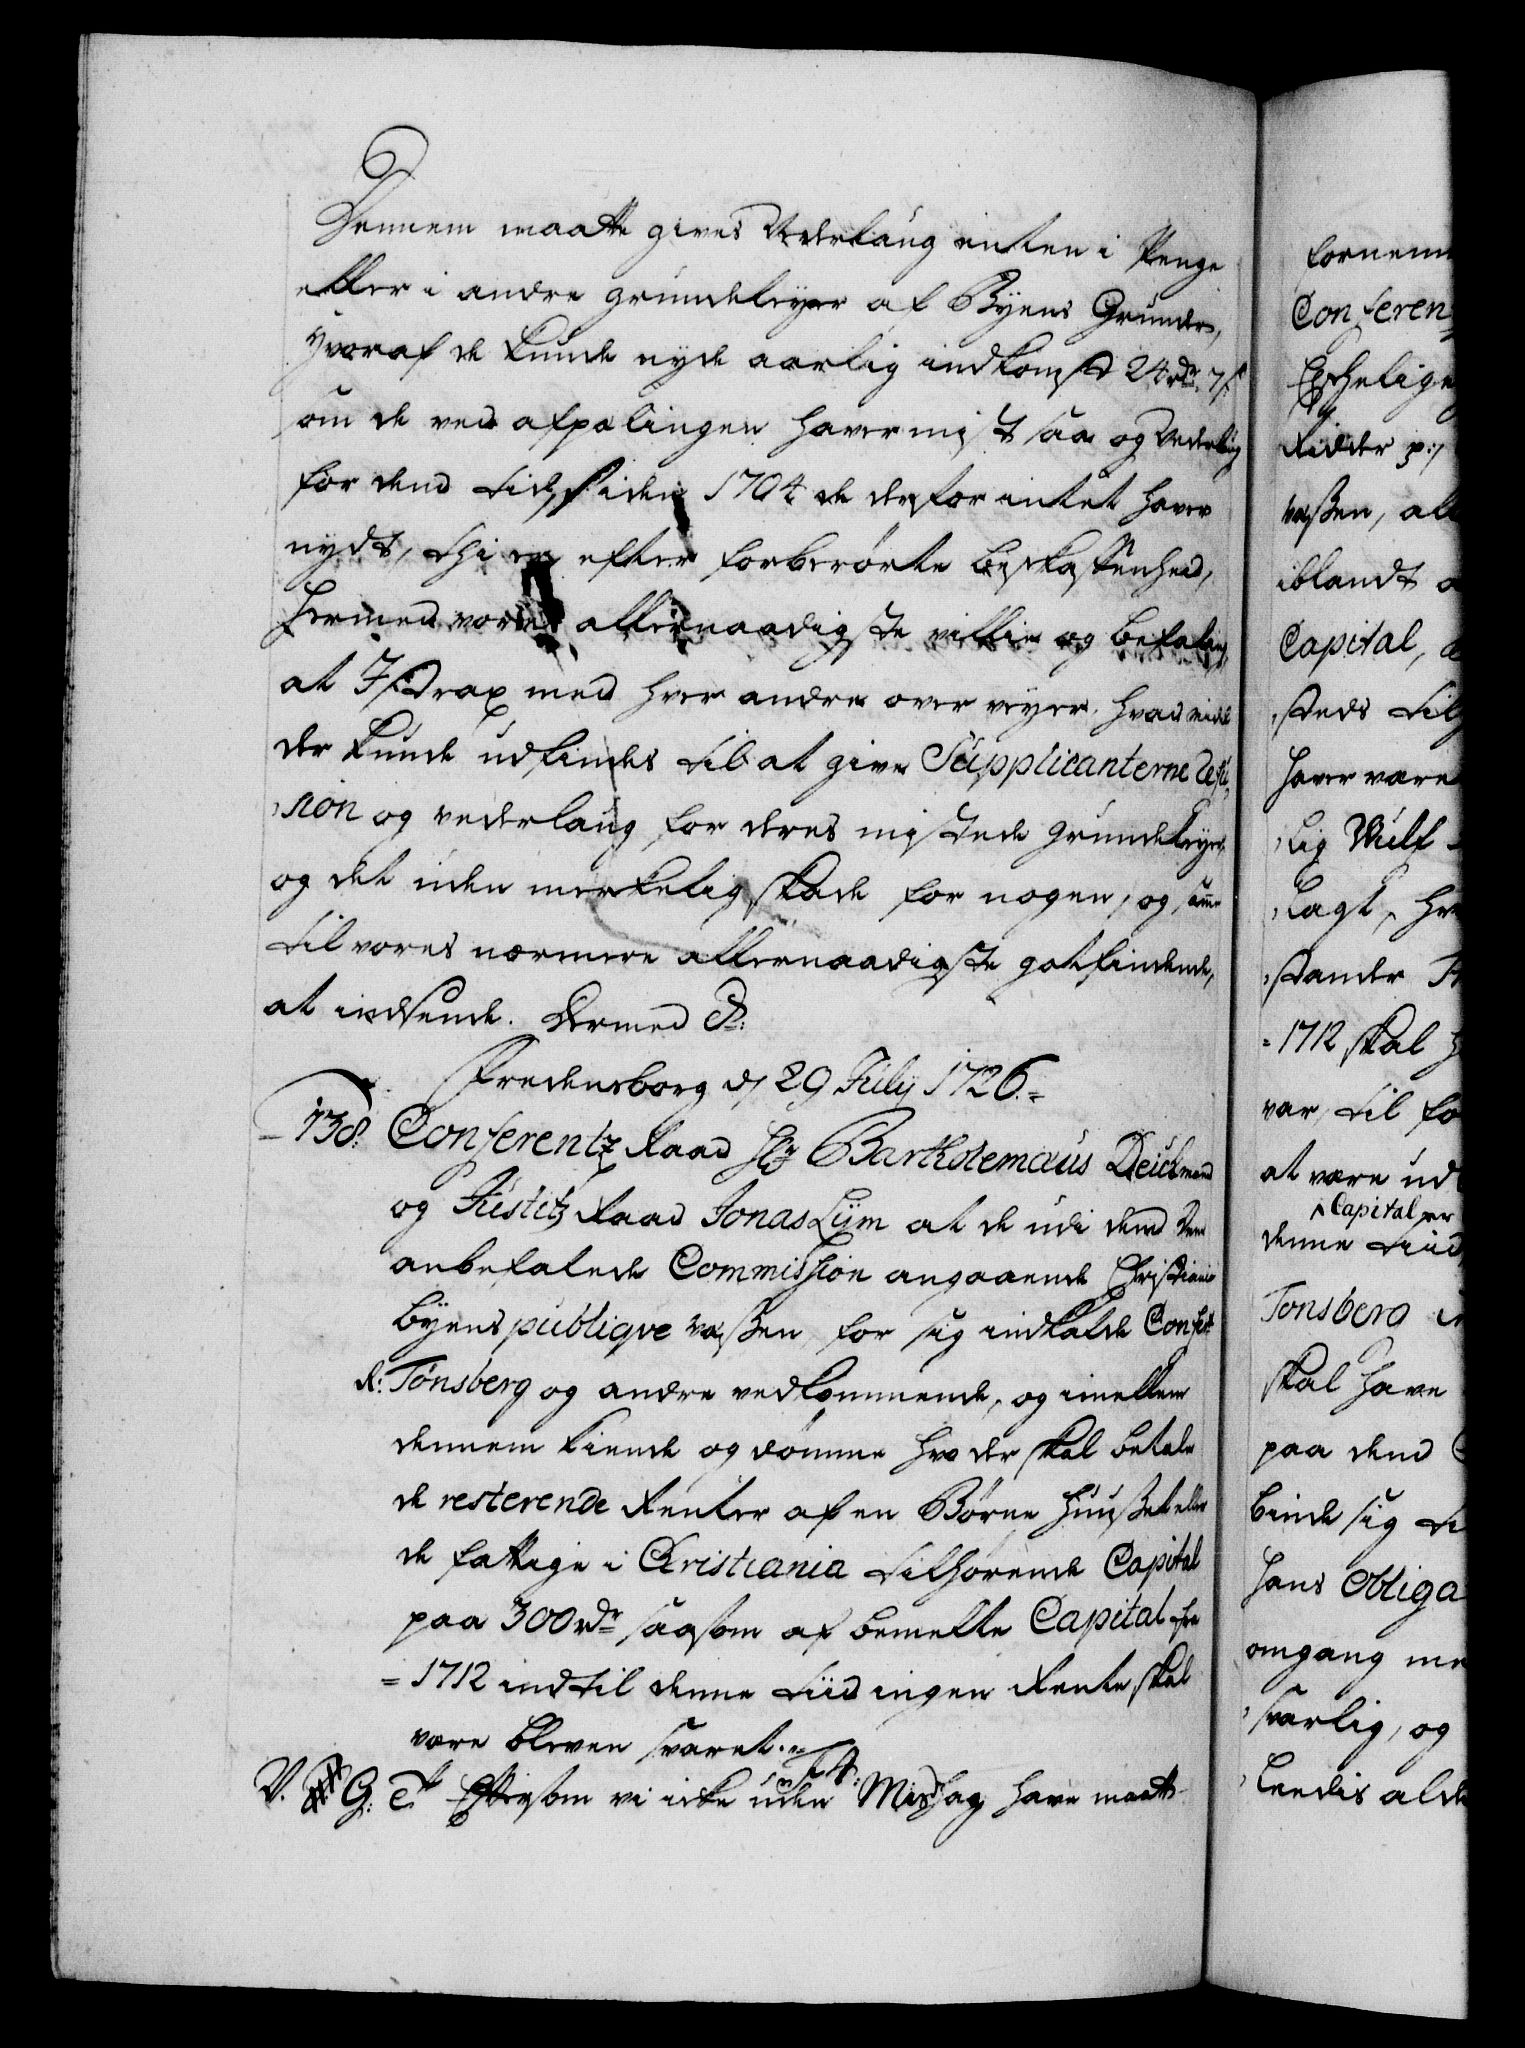 Dennem maatte gives Vederlaug enten i Penge
eller i andre grundeleyer af Byens Grunde,
hvoraf de kunde nyde aarlig indkomst 24 rdr. 7 s
som de ved afpælingen haver mist saa og vederlaug
for dend tid, siden 1704 de derfor intet haver
nydt, thi er efter forberørte beskaffenhed,
hermed vores allernaadigste villie og befaling,
at I strax med hver andre over veyer, hvad middel
der kunde udfindes til at give Supplicanterne Refu-
sion og vederlaug for deres mistede grundeleyer,
og det uden merkelig skade for nogen, og samme
til vores nærmere allernaadigste gotfindende,
at indsende. Dermed &:
Fredensborg d. 29 July 1726.
138. Conferentz Raad Hr Bartholomæus Deichmand
og Justitz Raad Jonas Lym at de udi dend dem
anbefalede Commission angaaende Christiania
Byens publiqve væsen, for sig indkalde Conferentz
R: Tønsberg og andre vedkommende, og imellem
dennem kiende og dømme hvo der skal betale
de resterende Renter af en Børne Huuset eller
de fattige i Christiania tilhørende Capital
paa 300 rdr saasom af bemelte Capital fra
1712 indtil denne tiid ingen Rente skal
være bleven svaret.
V. G: T Eftersom vi icke uden Mishag have maatt
fornem
Conferen
Etzhelige
Ridder p:
væsen, al
iblandt a
Capital,
steds til
haver være
lig Wulf
lagt, hv
stander
1712 skal h
var, til fo
at være ud
Capital er
denne tiid
Tønsberg
skal have
paa dend
binde sig ti
hans Obliga
omgang me
svarlig, og
leedis alde